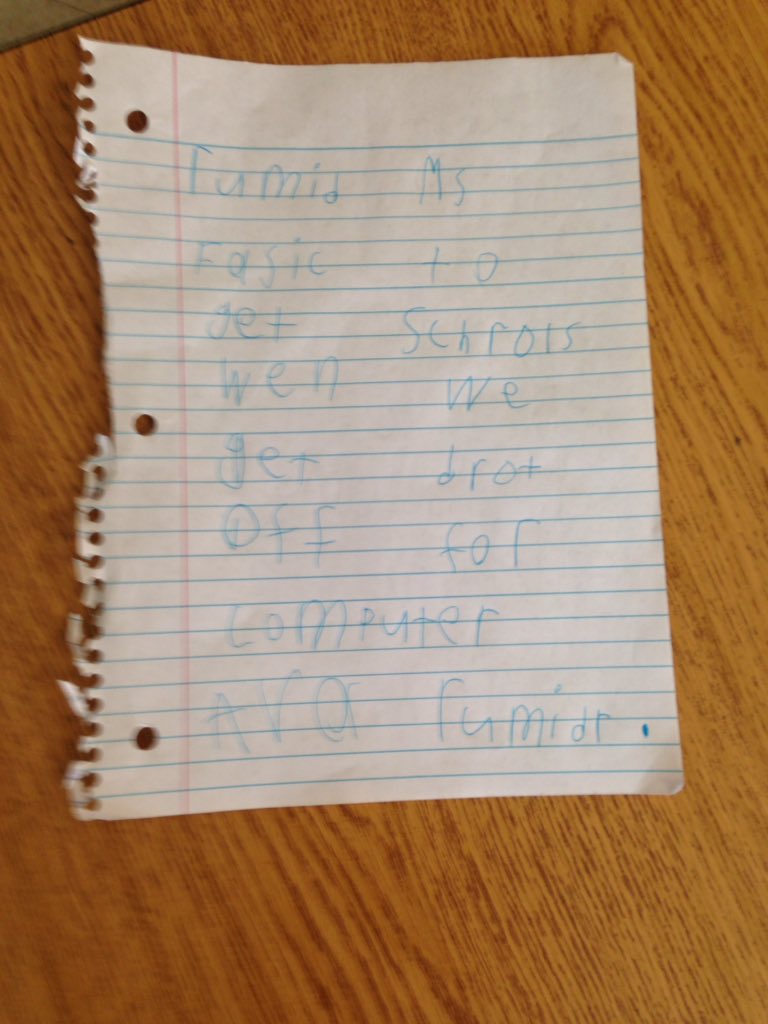 rumid Ms
Fasic to
get Schrois
wen we
get drot
Off for
computer
AVA rumidr.